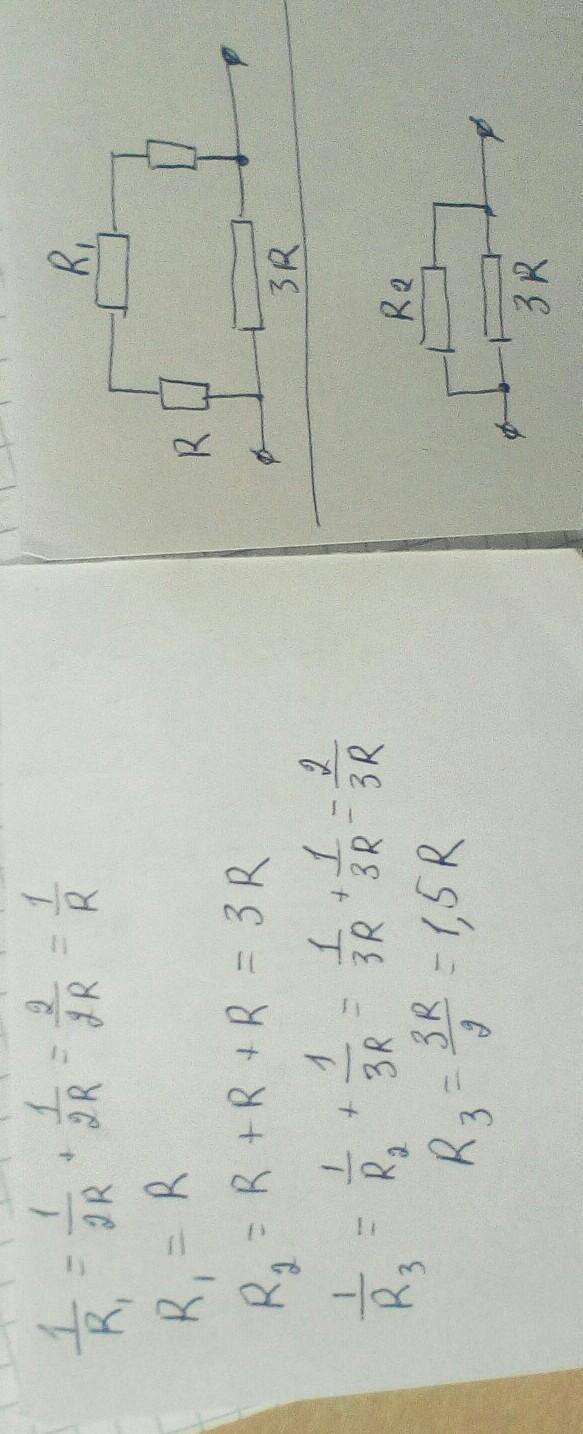 1/R₁ = 1/2R + 1/2R = 2/2R = 1/R
R₁ = R
R₂ = R + R + R = 3R
1/R₃ = 1/R₂ + 1/3R = 1/3R + 1/3R - 2/3R
R₃ = 3R/2 = 1,5R
R₁
R
3R
R₂
3R